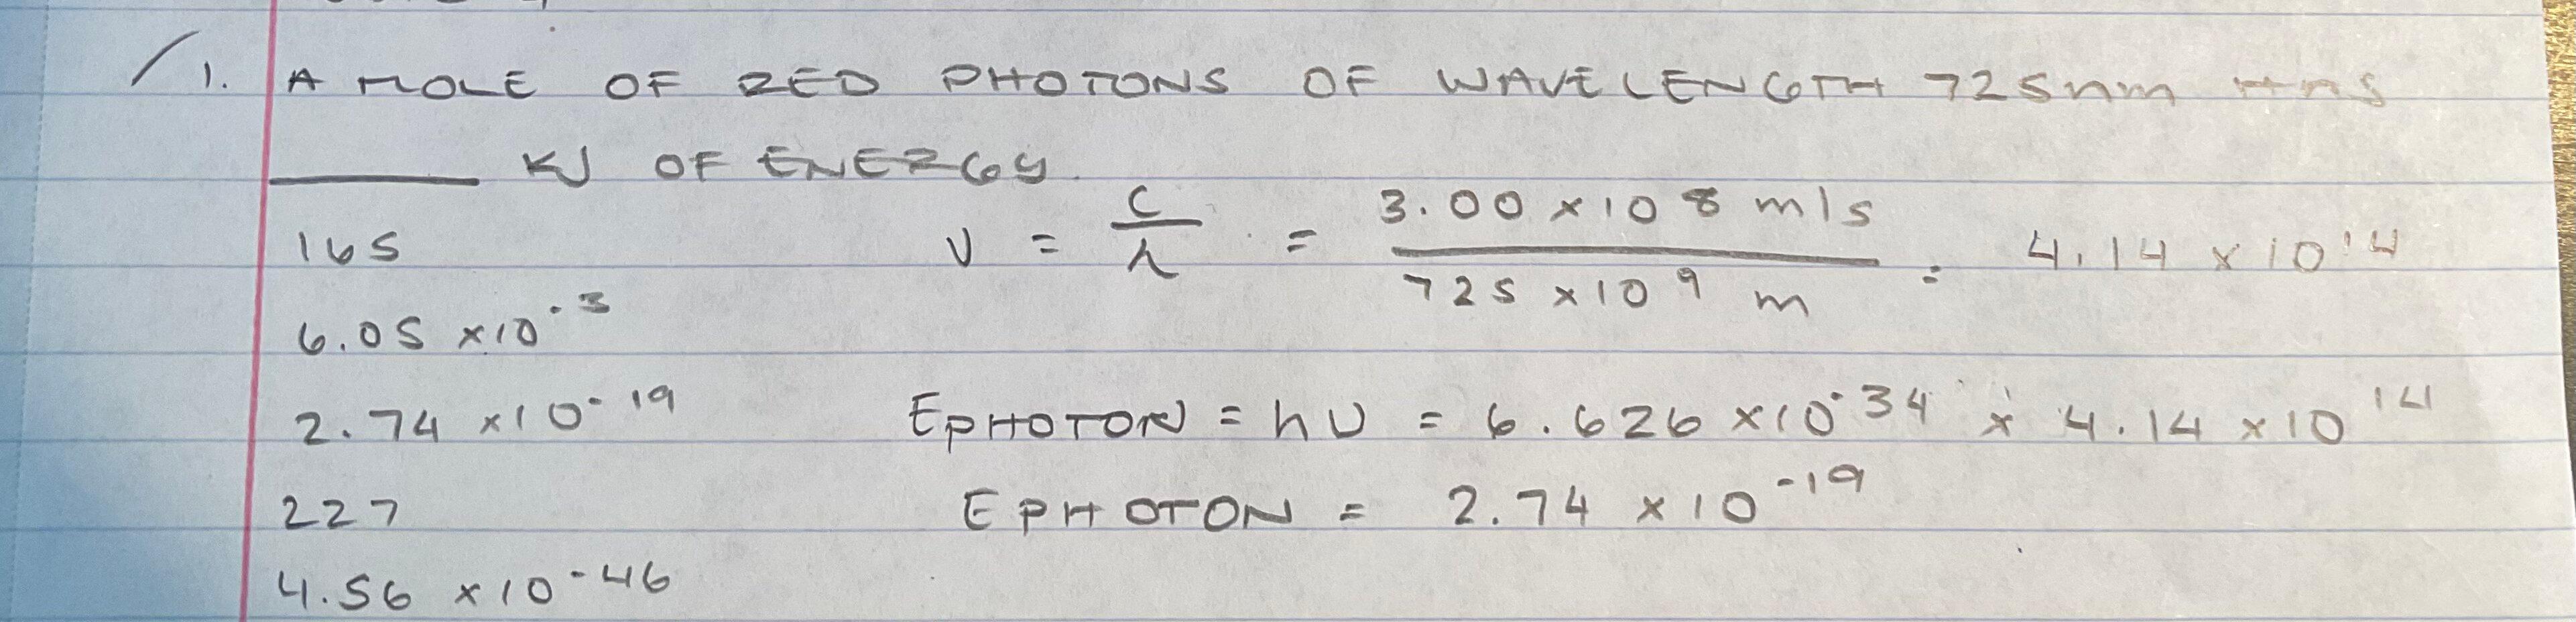 1. A MOLE OF RED PHOTONS OF WAVELENGTH 725nm HAS
_____ KJ OF ENERGY.
165
6.05 x10-3
2.74 x10-19
227
4.56 x10-46
ν = c/λ = 3.00 x10 8 m/s / 725 x10 9 m = 4.14 x10 14
EPHOTON = hν = 6.626 x10-34 x 4.14 x10 14
EPHOTON = 2.74 x10-19